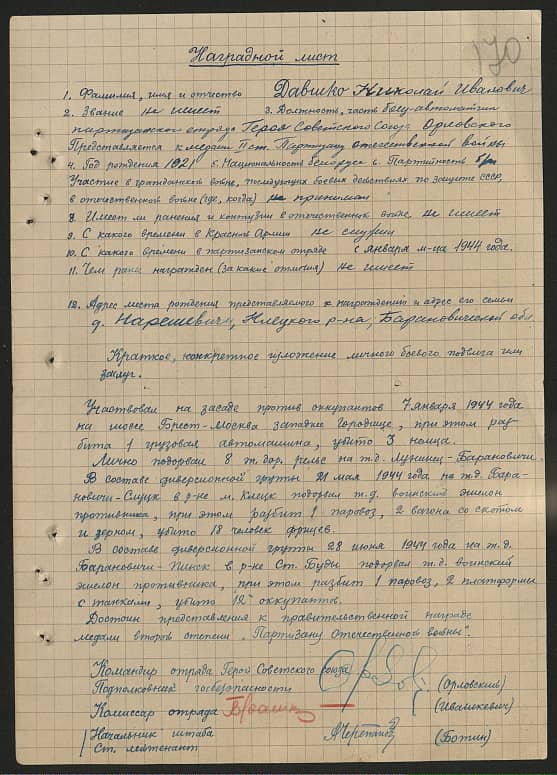 170
Наградной лист
1. Фамилия, имя и отчество Давшко Николай Иванович
2. Звание не имеет 3. Должность, часть боец-автоматчик
партизанского отряда Героя Советского Союз. Орловского
Представляется к медали II ст. Партизану отечественной войны
4. Год рождения 1921 5. Национальность белорус 6. Партийность б/п
Участие в гражданской войне, последующих боевых действиях по защите СССР,
в отечественной войне (где, когда) не принимал
8. Имеет ли ранения и контузии в отечественной войне не имеет
9. С какого времени в Красной Армии не служил
10. С какого времени в партизанском отряде с января м-ца 1944 года.
11. Чем ранее награжден (за какие отличия) не имеет
12. Адрес места рождения представляемого к награждению и адрес его семьи
д. Нарешевичи, Клецкого р-на, Барановической обл.
Краткое, конкретное изложение личного боевого подвига или
заслуг.
Участвовал на засаде против оккупантов 7 января 1944 года
на шоссе Брест-Москва западнее Городище, при этом раз-
бита 1 грузовая автомашина, убито 3 немца.
Лично подорвал 8 ж.дор. рельс на ж.д. Лунинец-Барановичи.
В составе диверсионной группы 21 мая 1944 года на ж.д. Бара-
новичи-Слуцк в р-не м. Клецк подорвал ж.д. воинский эшелон
противника, при этом разбит 1 паровоз, 2 вагона со скотом
и зерном, убито 18 человек фрицев.
В составе диверсионной группы 28 июня 1944 года на ж.д.
Барановичи-Пинск в р-не ст. Буды подорвал ж.д. воинский
эшелон противника, при этом развит 1 паровоз, 2 платформы
с танками, убито 12 оккупантов.
Достоин представления к правительственной награде
медали второй степени "Партизану Отечественной войны".
Командир отряда Герой Советского союза
Подполковник госбезопасности (Орловский)
Комиссар отряда (Ивашкевич)
Начальник штаба
Ст. лейтенант (Ботин)